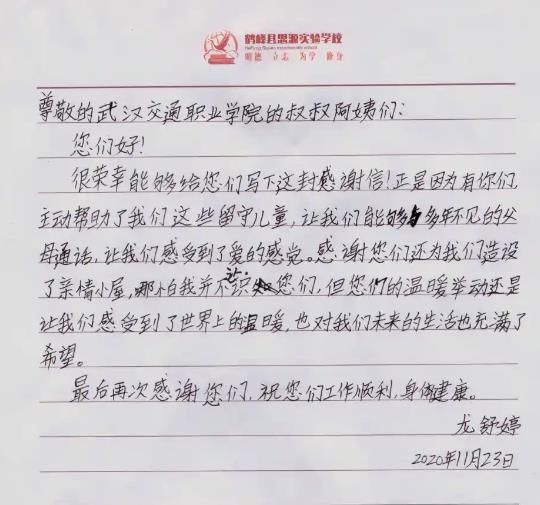 鹤峰县思源实验学校
HeFeng Siyuan experimental school
明德 立志 为学 修身
尊敬的武汉交通职业学院的叔叔阿姨们:
您们好!
很荣幸能够给您们写下这封感谢信!正是因为有你们,
主动帮助了我们这些留守儿童,让我们能够与多年不见的父
母通话,让我们感受到了爱的感觉。感谢您们还为我们造设
了亲情小屋,哪怕我并不认识您们,但您们的温暖举动还是
让我们感受到了世界上的温暖,也对我们未来的生活也充满了
希望。
最后再次感谢您们,祝您们工作顺利,身体健康。
龙舒婷
2020年11月23日